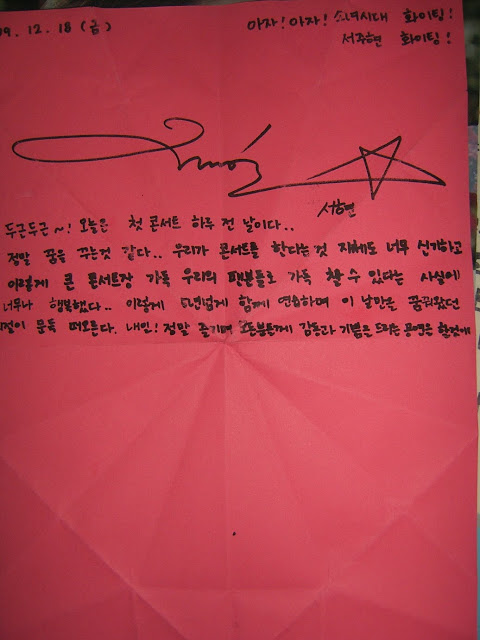 09. 12. 18 (금)
아자! 아자! 소녀시대 화이팅!
서주현 화이팅!
서현
두근두근~! 오늘은 첫 콘서트 하루 전 날이다..
정말 꿈을 꾸는것 같다.. 우리가 콘서트를 한다는것 자체도 너무 신기하고
이렇게 큰 콘서트장 가득 우리의 팬분들로 가득 찰 수 있다는 사실에
너무나 행복했다.. 이렇게 5년넘게 함께 연습하며 이 날만을 꿈꿔왔던
점이 문득 떠오른다. 내일! 정말 즐기며 모든분들께 감동과 기쁨을 드리는 공연을 할것에